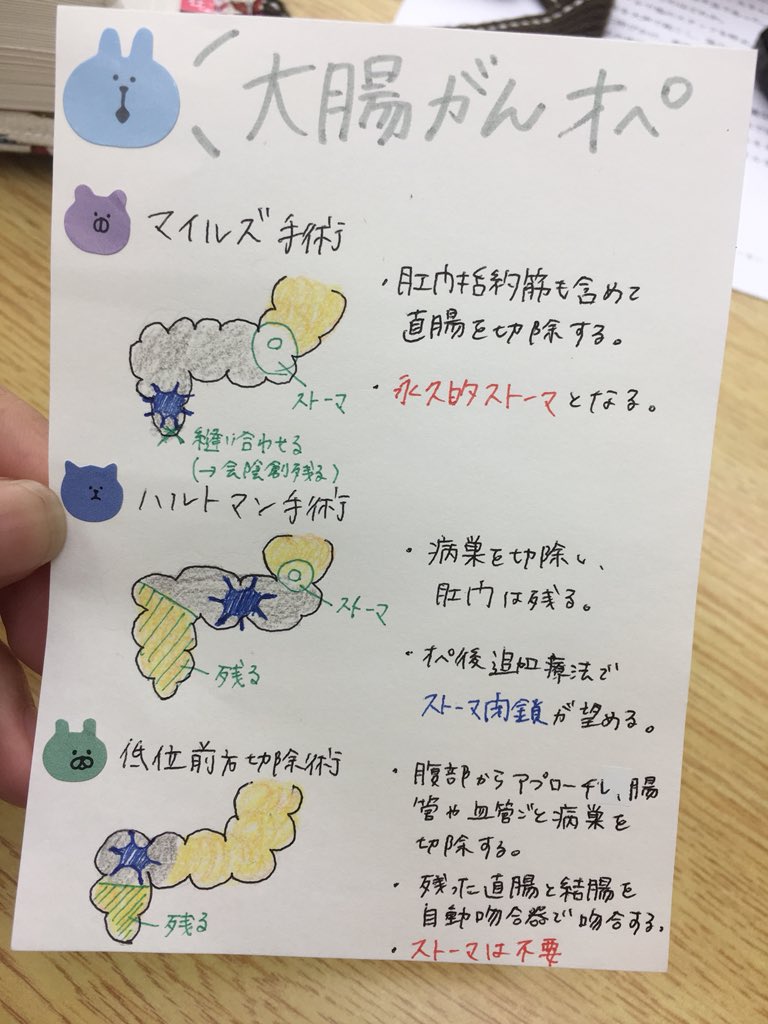 大腸がんオペ
マイルズ手術
・肛門括約筋も含めて
直腸を切除する。
・永久的ストーマとなる。
ストーマ
縫い合わせる
(→会陰創残る)
ハルトマン手術
・病巣を切除し、
肛門は残る。
・オペ後追加療法で
ストーマ閉鎖が望める。
ストーマ
残る
低位前方切除術
・腹部からアプローチし、腸
管や血管ごと病巣を
切除する。
・残った直腸と結腸を
自動吻合器で吻合する。
・ストーマは不要
残る